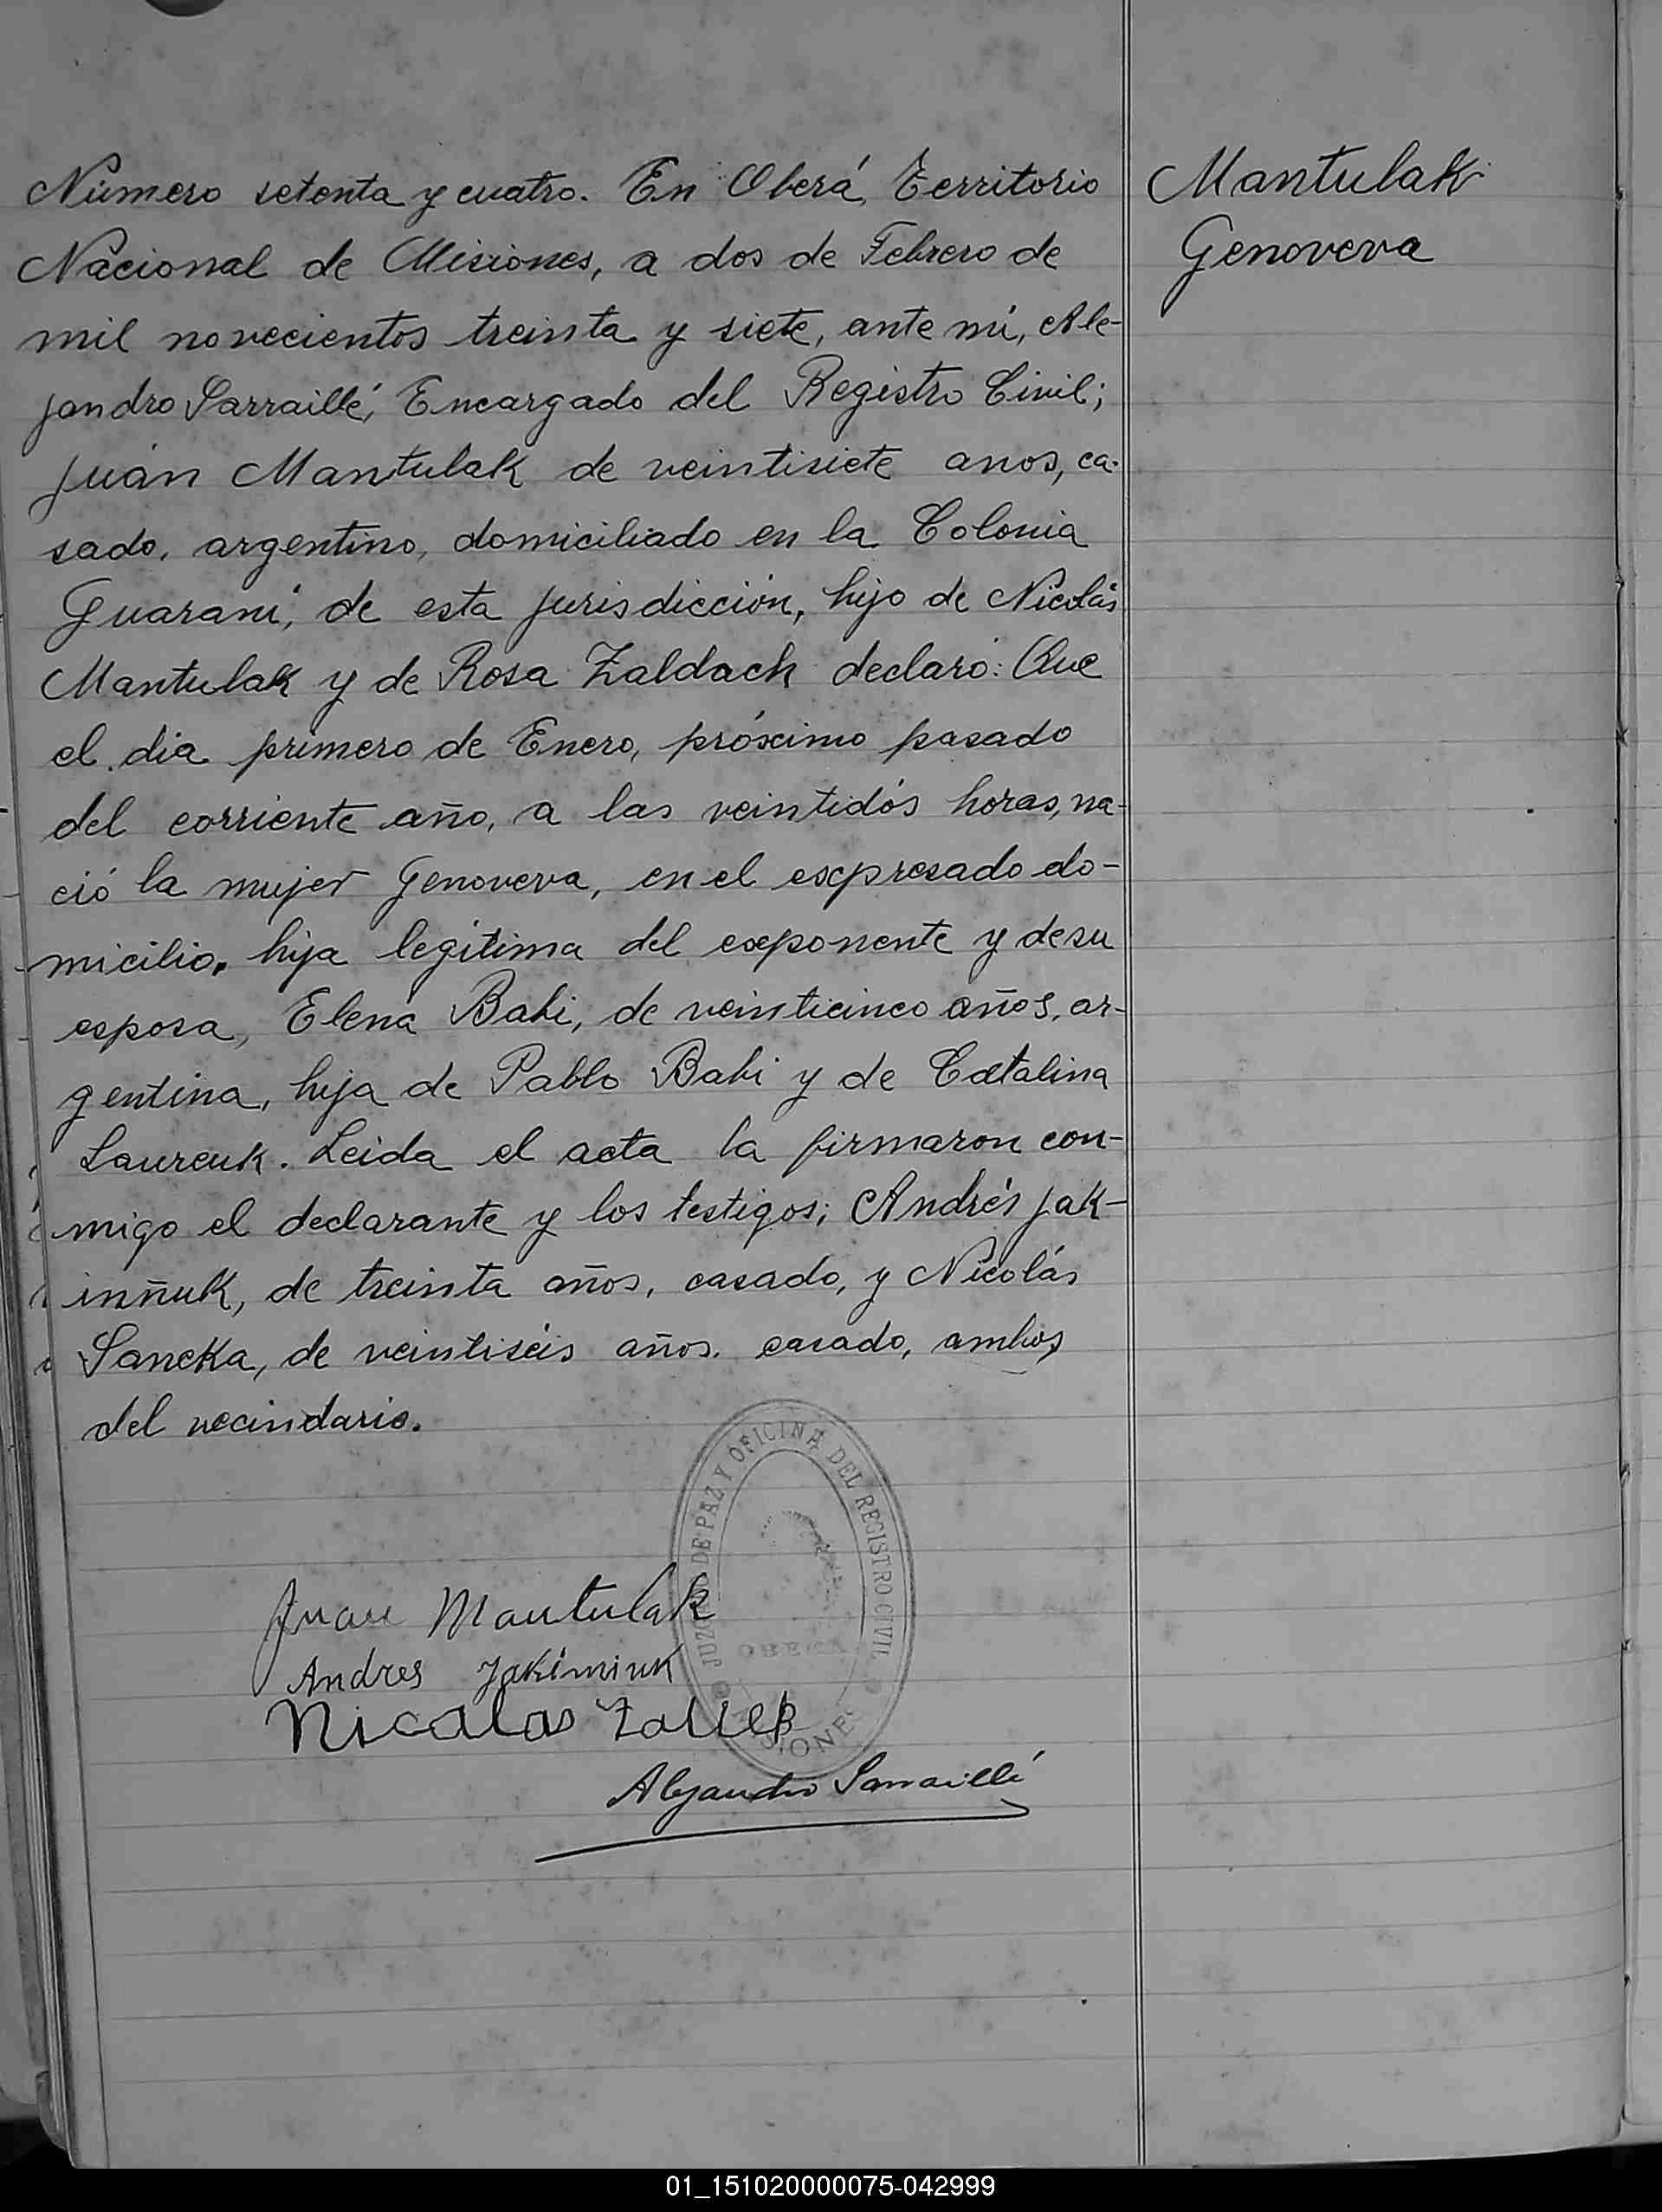 Número setenta y cuatro. En Oberá, Territorio
Nacional de Misiones, a dos de Febrero de
mil novecientos treinta y siete, ante mí, Ale-
jandro Sarraillé, Encargado del Registro Civil;
Juan Mantulak de veintisiete anos, ca-
sado, argentino, domiciliado en la Colonia
Guaraní, de esta jurisdicción, hijo de Nicolás
Mantulak y de Rosa Zaldach declaró: Que
el dia primero de Enero, próximo pasado
del corriente año, a las veintidós horas, na-
ció la mujer Genoveva, en el expresado do-
micilio, hija legítima del exponente y de su
esposa, Elena Babi, de veinticinco años, ar-
gentina, hija de Pablo Babi y de Catalina
Laureuk. Leida el acta la firmaron con-
migo el declarante y los testigos; Andrés Jak-
inñuk, de treinta años, casado, y Nicolás
Saneka, de veintiséis años, casado, ambos
del vecindario.
Mantulak
Genoveva
JUZGADO DE PAZ Y OFICINA DEL REGISTRO CIVIL
MISIONES
Juan Mantulak
Andres Jakimiuk
Nicolas
Alejandro Sarraillé
01_151020000075-042999